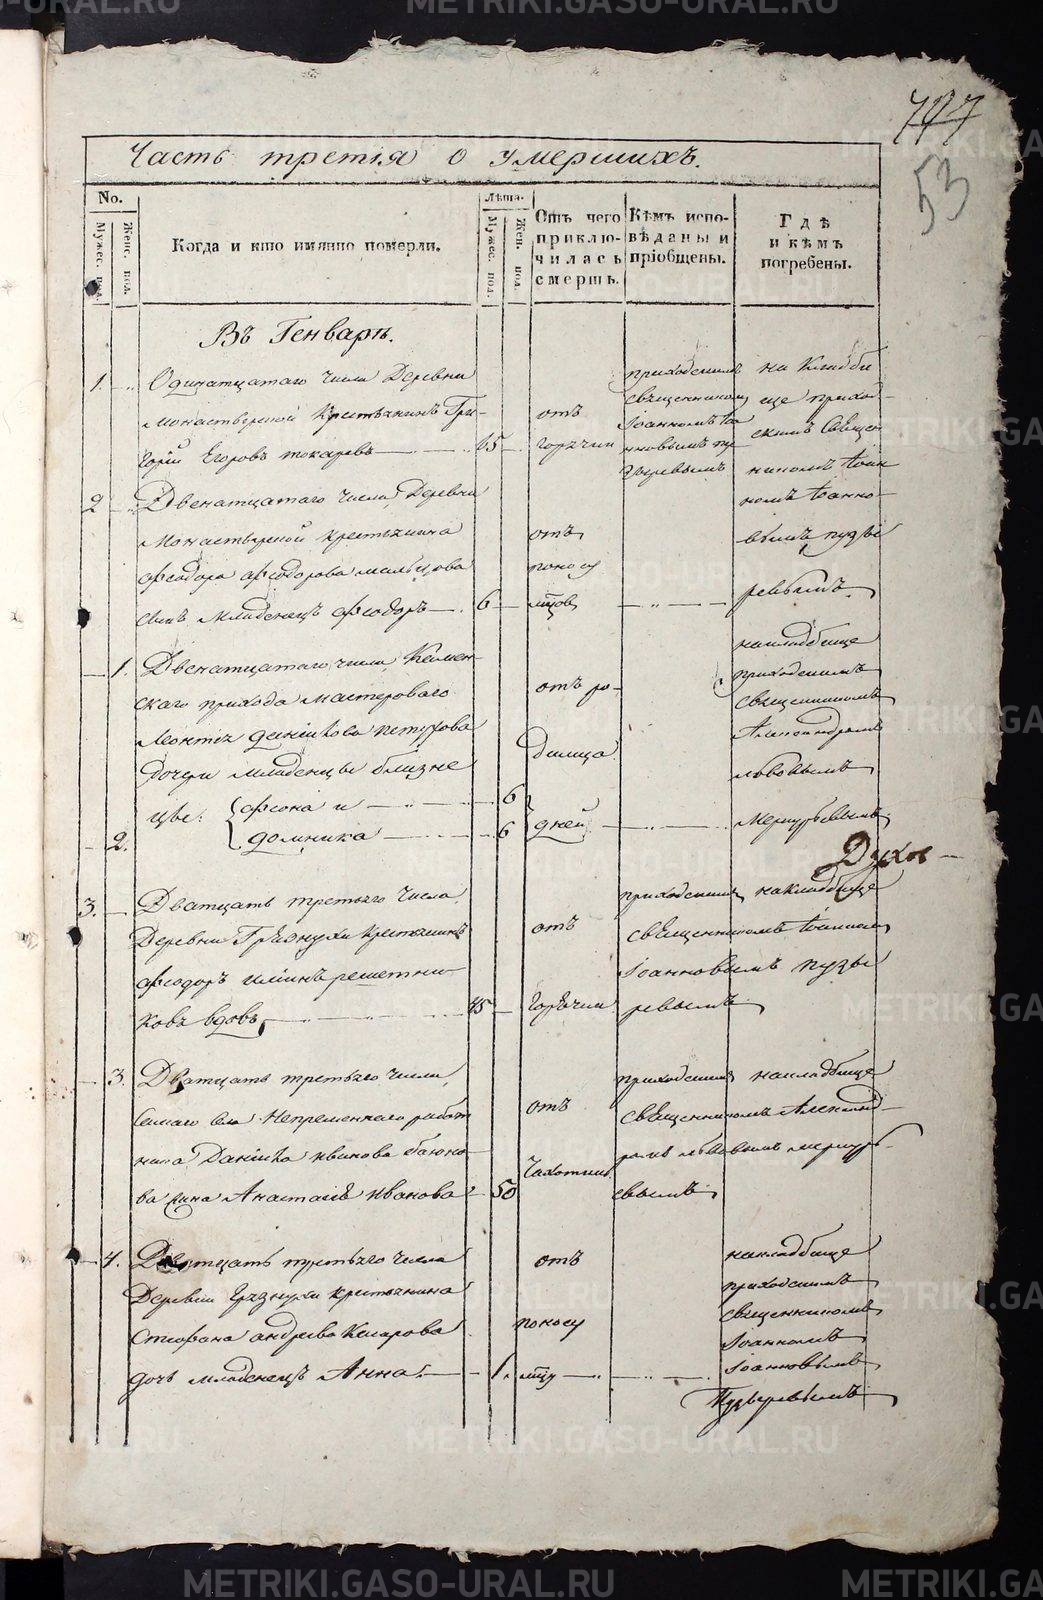 METRIKI.GASO-URAL.RU
707
53
Часть третія о умершихъ.
No.
Мужес. пол.
Женс. пол.
Когда и кто имянно померли.
Лѣта.
Мужес. пол.
Жен. пол.
Отъ чего приклю-
чилась смерть.
Кѣмъ испо-
вѣданы и
пріобщены.
Гдѣ
и кѣмъ
погребены.
Въ Генварѣ.
1. Одинатцатаго числа Деревни
Монастырской крестьянинъ Гри-
горій Егоровъ токаревъ
отъ
горячки
приходскимъ
священникомъ
Іоанномъ Іоа
нновымъ пу
зыревымъ
на кладби
ще приход
скимъ Священ
никомъ Іоан
номъ Іоанно-
вымъ пузы
ревымъ.
2 Двенатцатаго числа Деревни
Монастырской крестьянина
Ѳеодора Ѳеодорова мальцова
сынъ младенецъ Ѳеодоръ 6
отъ
поносу
мцов
1. Двенатцатаго числа Камен-
скаго прихода мастероваго
петухова
дочери младенцы близне
цы: Ѳеона и 6
2. домника 6
отъ ро-
димца
дней
на кладбище
приходскимъ
священникомъ
Александромъ
львовымъ
Меркурьевымъ
Духов
3. Дватцать третьяго числа
Деревни Грязнухи крестьянинъ
Ѳеодоръ решетни-
ковъ вдовъ
отъ
горячки
приходскимъ на кладбище
священникомъ Іоанномъ
Іоанновымъ пузы
ревымъ
3. Дватцать третьяго числа
села Непременнаго работ
ника Даніила иванова
ва жена Анастасія иванова 50
отъ
Чахотки
приходскимъ на кладбище
священникомъ Александ-
ромъ львовымъ меркурь-
евымъ
4. Дватцать третьяго числа
Деревни Грязнухи крестьянина
Стефана андреева
дочь младенецъ Анна. 1.
отъ
поносу
мцу
на кладбище
приходскимъ
священникомъ
Іоанномъ
Іоанновымъ
Пузыревымъ
METRIKI.GASO-URAL.RU